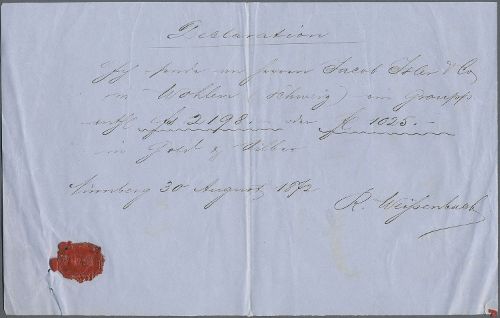 Declaration
Ich sende an Herrn Jacob Isler & Co
in Wohlen (Schweiz) ein Group
enth. cfs 2198.- oder fl 1025.-
in Gold & Silber
Nürnberg 30 August 1872
R. Weißenbach